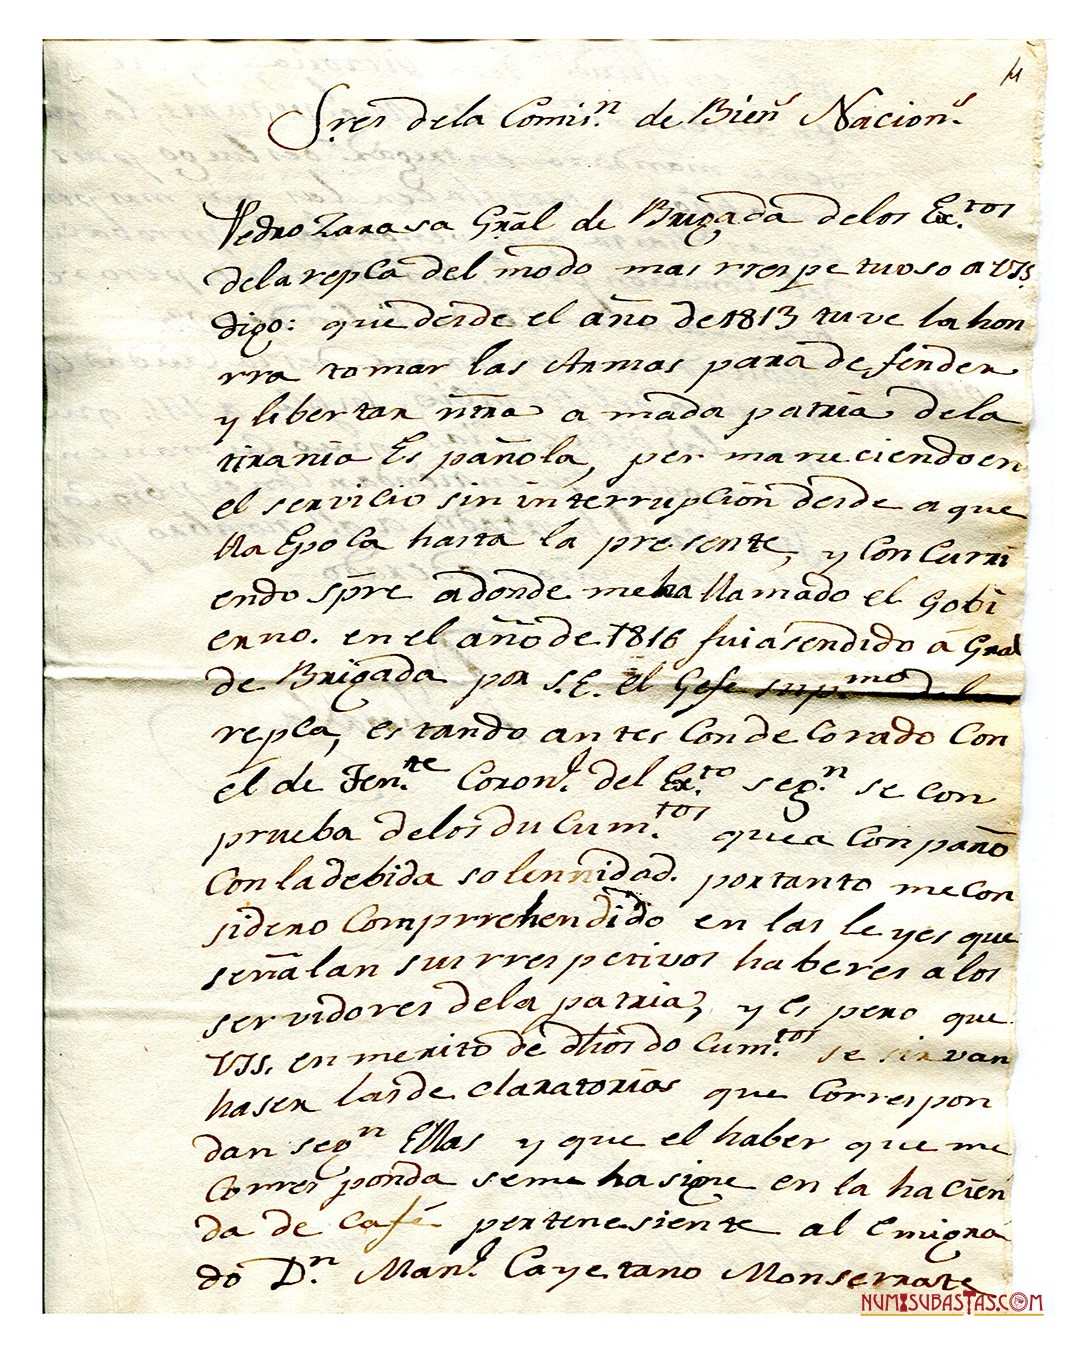 M
Sres dela Comis.n de Bien.s Nacion.s
Pedro Zarasa Grâl de Brigada delos Ex.tos
dela repca del modo mas rrespetuoso a VSS.
digo: que desde el año de 1813 tuve la hon
rra tomar las Armas para defender
y libertar ntra amada patria dela
tirania Española, permaneciendo en
el servicio sin interrupcion desde aque
lla Epoca hasta la presente, y Concurri
endo spre adonde meha llamado el Gobi
erno. en el año de 1816 fui asendido á Gral
de Brigada por S.E. el Gefe Sup.mo dela
repca, estando antes Condecorado Con
el de Ten.te Coron.l del Ex.to seg.n se con
prueba delos ducum.tos que acompaño
Con la debida solennidad. por tanto me con
sidero Comprrehendido en las leyes que
señalan sus rrespectivos haberes a los
servidores dela patria, y Espero que
VSS. en merito de dhos docum.tos se sirvan
haser las declaratorias que Correspon
dan seg.n Ellas y que el haber que me
Corresponda seme hasigne en la hacien
da de Café pertenesiente al Emigra
do D.n Man.l Cayetano Monserrate
NUMISUBASTAS.COM